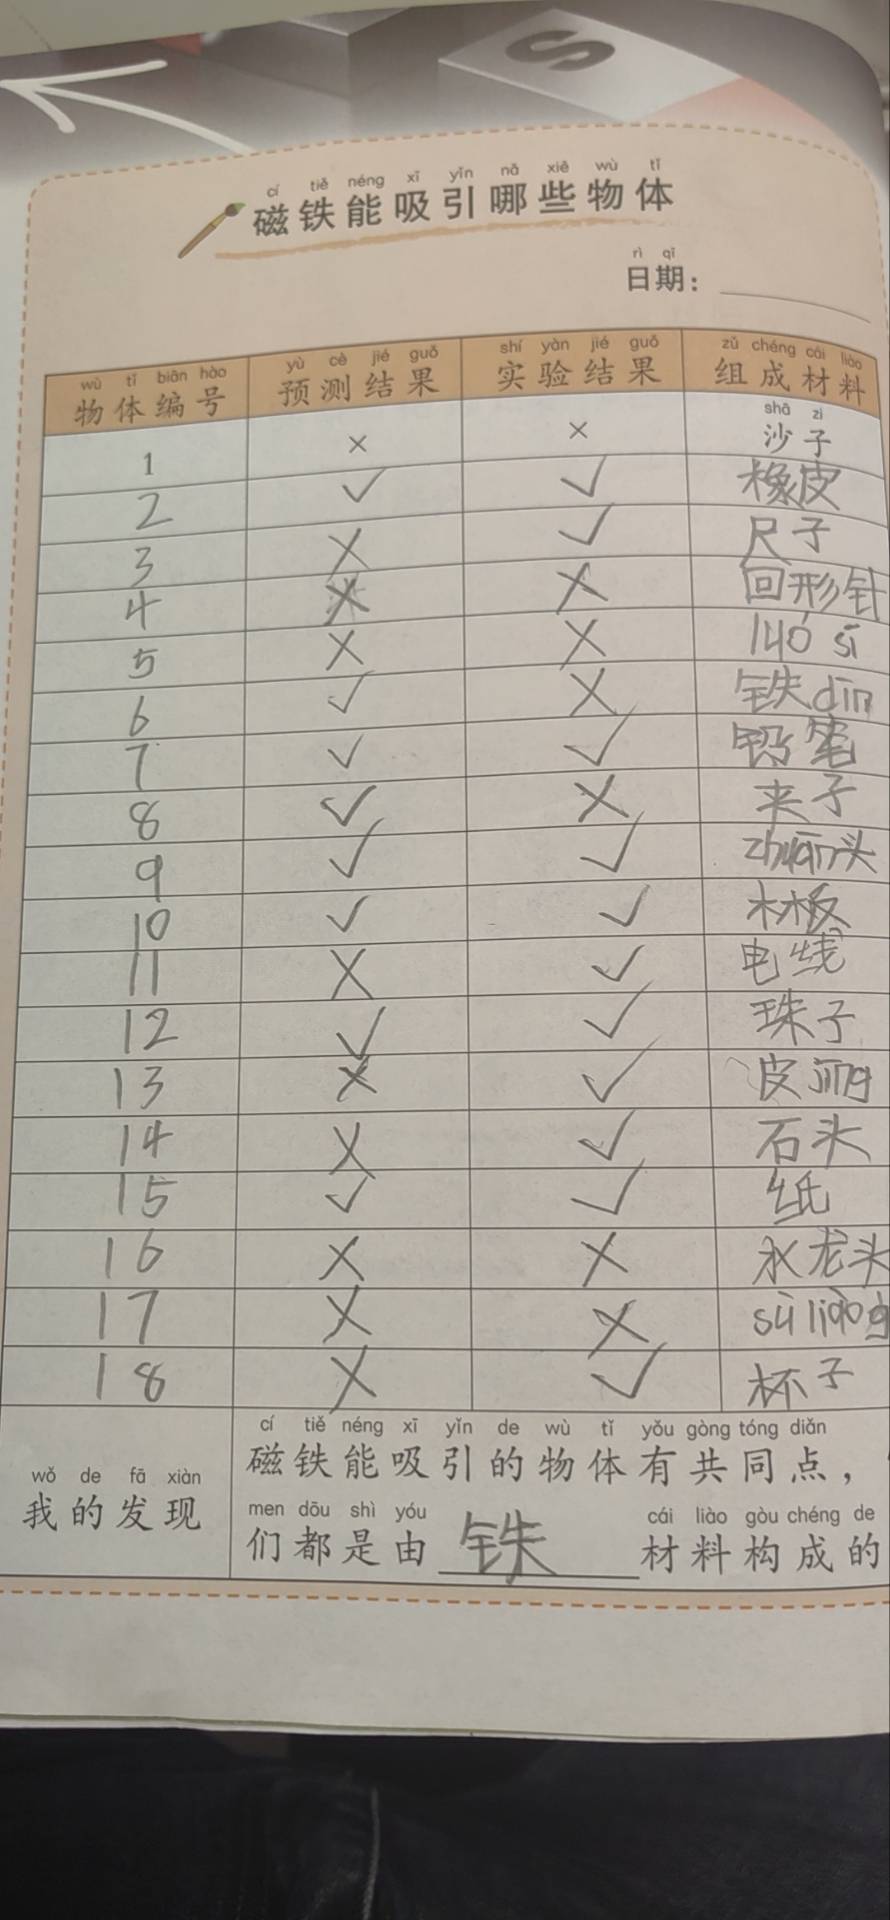 S
cí tiě néng xī yǐn nǎ xiē wù tǐ
磁铁能吸引哪些物体
rì qī
日期：
wù tǐ biān hào yù cè jié guǒ shí yàn jié guǒ zǔ chéng cái liào
物体编号 预测结果 实验结果 组成材料
shā zi
1 × × 沙子
2 ✓ ✓ 橡皮
3 × ✓ 尺子
4 × × 回形针
5 × × luó sī
6 ✓ × 铁dīn
7 ✓ ✓ 铅笔
8 ✓ × 夹子
9 ✓ ✓ zhuān头
10 ✓ ✓ 木板
11 × ✓ 电线
12 ✓ ✓ 珠子
13 × ✓ 皮jīng
14 × ✓ 石头
15 ✓ ✓ 纸
16 × × 水龙头
17 × ×
18 × ✓ 杯子
cí tiě néng xī yǐn de wù tǐ yǒu gòng tóng diǎn
磁铁能吸引的物体有共同点，
wǒ de fā xiàn
我的发现
men dōu shì yóu cái liào gòu chéng de
们都是由 铁 材料构成的